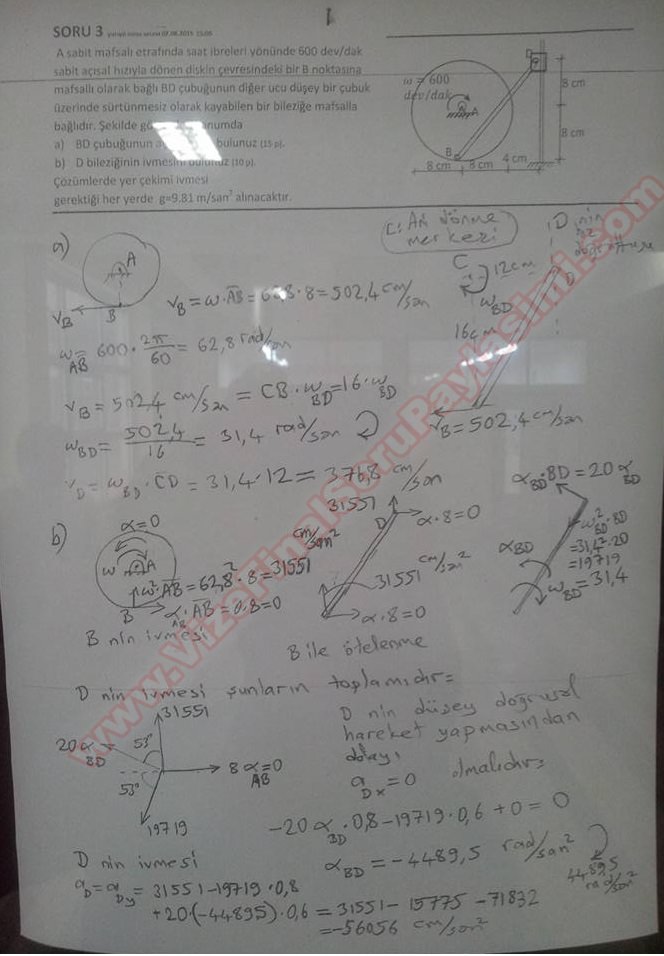 SORU 3
A sabit mafsalı etrafında saat ibreleri yönünde 600 dev/dak
sabit açısal hızıyla dönen diskin çevresindeki bir B noktasına
mafsallı olarak bağlı BD çubuğunun diğer ucu düşey bir çubuk
üzerinde sürtünmesiz olarak kayabilen bir bileziğe mafsalla
bağlıdır. Şekilde konumda
a) BD çubuğunun bulunuz (15 p).
b) D bileziğinin ivmesini bulunuz (10 p).
Çözümlerde yer çekimi ivmesi
gerektiği her yerde g=9.81 m/san² alınacaktır.
ω = 600
dev/dak
A
B
D
8 cm
8 cm
8 cm 8 cm 4 cm
a)
A
B
V_B
C: Ani dönme
merkezi
D nin
doğrultusu
C
12cm
D
ω_BD
16cm
V_B = ω·AB = 62,8·8 = 502,4 cm/san
ω_AB = 600·2π/60 = 62,8 rad/san
V_B = 502,4 cm/san = CB·ω_BD = 16·ω_BD
V_B = 502,4 cm/san
ω_BD = 502,4/16 = 31,4 rad/san
V_D = ω_BD·CD = 31,4·12 = 376,8 cm/san
b)
α=0
ω
A
ω²·AB = 62,8²·8 = 31551 cm/san²
B
α_AB·AB = 0·8 = 0
B nin ivmesi
31551
D
α·8=0
31551 cm/san²
α·8=0
B ile ötelenme
α_BD·BD = 20α_BD
ω²_BD·BD
=31,4²·20
=19719
α_BD
ω_BD=31,4
D nin ivmesi şunların toplamıdır=
31551
20α_BD
53°
53°
8α_AB=0
19719
D nin düşey doğrusal
hareket yapmasından
dolayı
a_Dx = 0 olmalıdır=
-20α_BD·0,8-19719·0,6+0=0
α_BD = -4489,5 rad/san²
4489,5
rad/san²
D nin ivmesi
a_D = a_Dy = 31551-19719·0,8
+20(-4489,5)·0,6 = 31551-15775-71832
=-56056 cm/san²
www.VizeFinalSoruPaylasimi.com